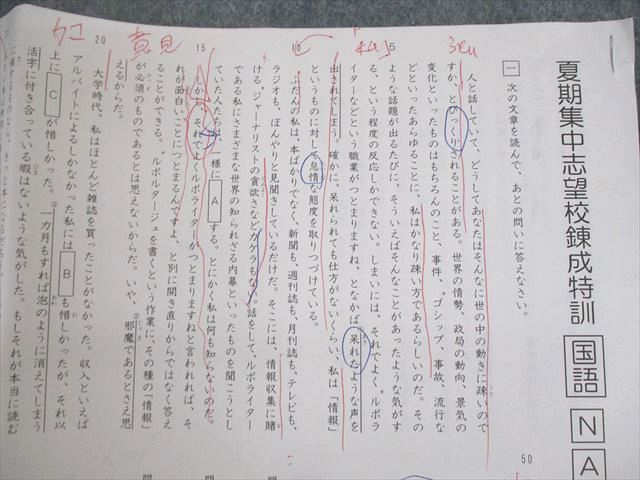 夏期集中志望校錬成特訓 国語 N A
一 次の文章を読んで、あとの問いに答えなさい。
人と話していて、どうしてあなたはそんなに世の中の動きに疎いので
すか、とびっくりされることがある。世界の情勢、政局の動向、景気の
変化といったものはもちろんのこと、事件、ゴシップ、事故、流行な
どといったあらゆることに、私はかなり疎い方であるらしいのだ。その
ような話題が出るたびに、そういえばそんなことがあったような気がす
る、という程度の反応しかできない。しまいには、それでよく〝ルポラ
イターなどという職業がつとまりますね、となかば呆れたような声を
出されてしまう。確かに、呆れられても仕方がないくらい、私は「情報」
というものに対して怠惰な態度を取りつづけている。
ふだんの私は、本ばかりでなく、新聞も、週刊誌も、月刊誌も、テレビも、
ラジオも、ぼんやりと見聞きしているだけだ。そこには、情報収集に賭
ける〝ジャーナリストの貪欲さなどカケラもない。話をして、ルポライター
である私にさまざまな世界の知られざる内幕といったものを聞こうとし
ていた人たちは、一様に A する。とにかく私は何も知らないのだ。
しかし、それでよくルポライターがつとまりますねと言われれば、そ
れが面白いことにつとまるんですよ、と別に開き直りからではなく答え
ることができる。〝ルポルタージュを書くという作業に、その種の「情報」
が必須のものであるとは思えないからだ。いや、邪魔であるとさえ思
えるからだ。
大学時代、私はほとんど雑誌を買ったことがなかった。収入といえば
アルバイトによるしかなかった私には B も惜しかったが、それ以
上に C が惜しかった。一カ月もすれば泡のように消えてしまう
活字に付き合っている暇はないような気がした。もしそれが本当に読む
5
10
15
20
50
意見